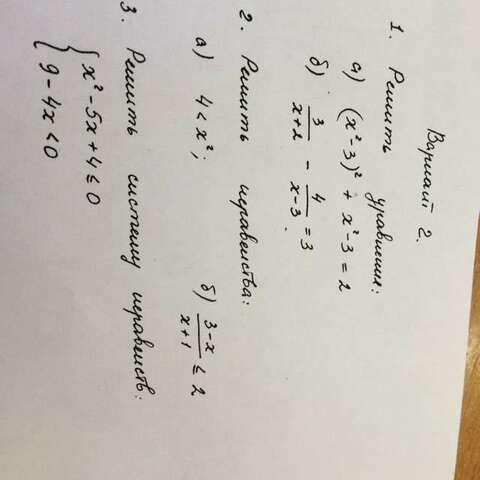 Вариант 2.
1. Решить уравнения:
а) (x²-3)² + x²-3 = 2
б) 3/(x+2) - 4/(x-3) = 3
2. Решить неравенства:
а) 4 < x²; б) (3-x)/(x+1) ≤ 2
3. Решить систему неравенств:
{ x² - 5x + 4 ≤ 0
9 - 4x < 0